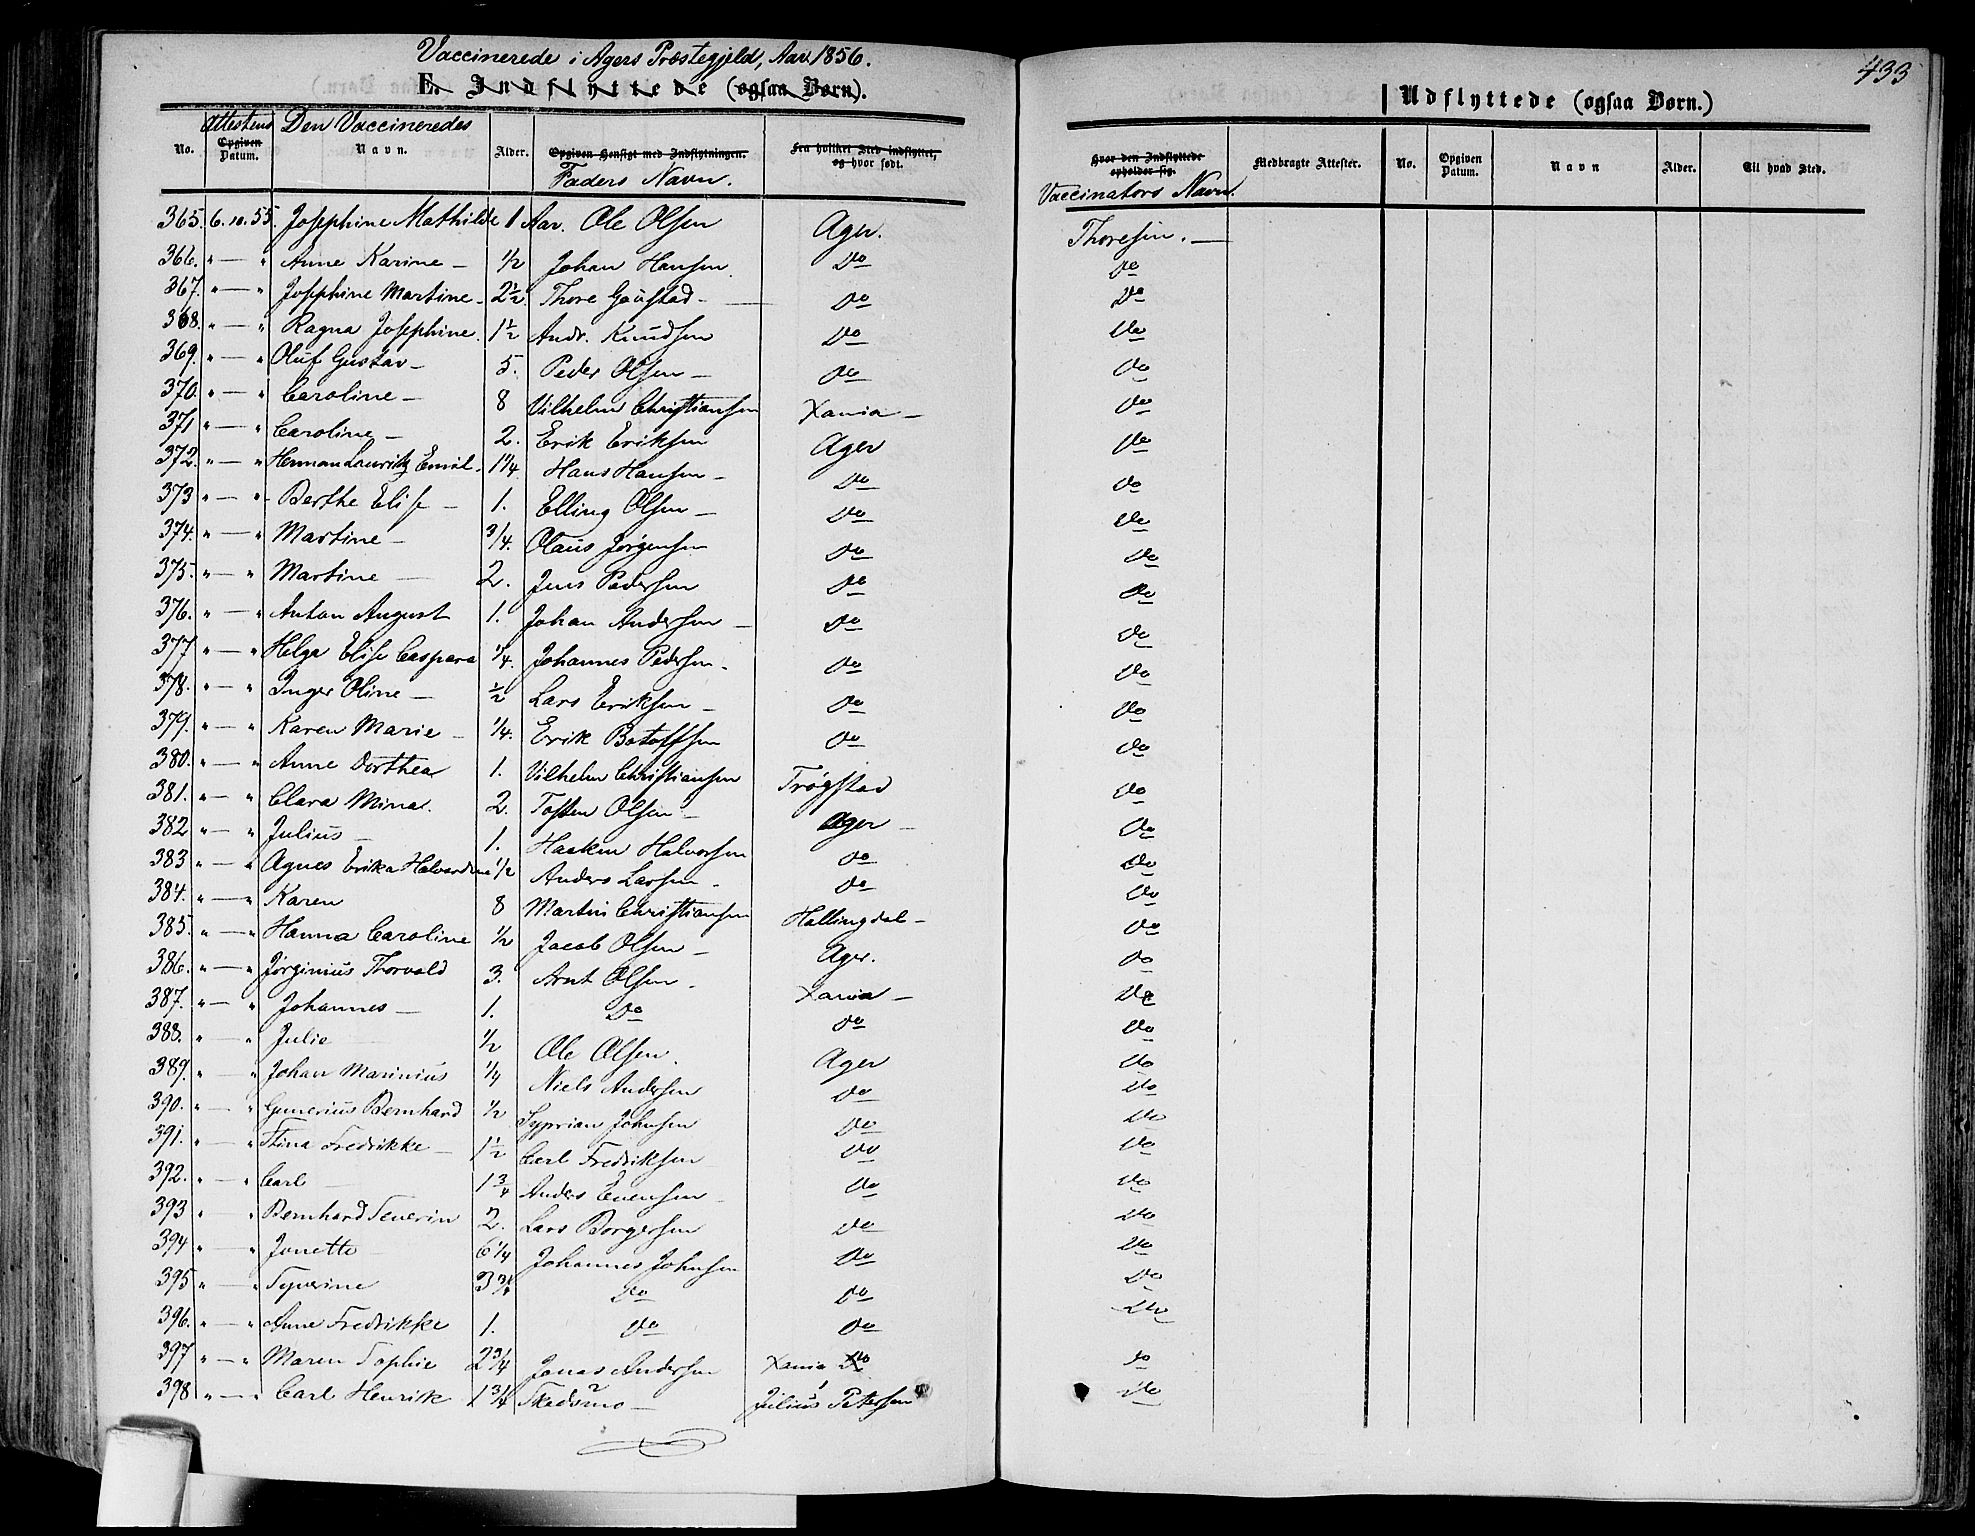 Vaccinerede i Agers Præstegjeld, Aar 1856.
E. Indflyttede (ogsaa Børn).
433
Udflyttede (ogsaa Børn.)
No. Attestens Opgiven Datum. Den Vaccineredes Navn. Alder. Opgiven Hensigt med Indflytningen. Faders Navn. Fra hvilket Sted indflyttet, og hvor født. Hvor den Indflyttede opholder sig. Vaccinators Navn. Medbragte Attester. No. Opgiven Datum. Navn Alder. Til hvad Sted.
365. 6.10.55. Josephine Mathilde 1 Aar. Ole Olsen Ager. Thoresen. —
366. " — " Anne Karine — 1/2 Johan Hansen. Do Do
367. " — " Josephine Martine — 2 1/2 Thore Gaustad — Do Do
368. " — " Ragna Josephine. 1 1/2 Andr. Knudsen Do Do
369. " — " Oluf Gustav — 5. Peder Olsen — Do Do
370. " — " Caroline — 8 Vilhelm Christiansen Xania — Do
371 " — " Caroline — 2. Erik Eriksen Ager Do
372. " — " Herman Lauritz Emil. 1 1/4. Hans Hansen — Do Do
373 " — " Berthe Elise — 1. Elling Olsen — Do Do
374. " — " Martine — 3/4. Olaus Jørgensen Do Do
375. " — " Martine — 2. Jens Pedersen Do Do
376. " — " Anton August 1. Johan Andersen — Do Do
377 " — " Helga Elise Caspara 1/4. Johannes Pedersen. Do Do
378. " — " Inger Oline — 1/2 Lars Eriksen — Do Do
379. " — " Karen Marie — 1/4. Erik Botolfsen Do Do
380. " — " Anne Dorthea 1. Vilhelm Christiansen Trøgstad Do
381. " — " Clara Mina. 2. Tosten Olsen — Ager — Do
382 " — " Julius — 1. Haaken Halvorsen Do Do
383 " — " Agnes Erika Halvardine 1/2 Anders Larsen. Do Do
384. " — " Karen 8 Martin Christiansen Hallingdal — Do
385. " — " Hanna Caroline 1/2 Jacob Olsen — Ager. Do
386. " — " Jørginius Thorvald 3. Arnt Olsen. Xania — Do
387. " — " Johannes — 1. Do Do Do
388. " — " Julie 1/2 Ole Olsen. Ager Do
389. " — " Johan Marinius 1/4 Niels Andersen Do Do
390. " — " Gunerius Bernhard 1/2 Syprian Johnsen Do Do
391. " — " Stina Fredrikke — 1 1/2 Carl Fredriksen Do Do
392. " — " Carl — 1 3/4 Anders Evensen Do Do
393 " — " Bernhard Severin 2. Lars Borgersen Do Do
394 " — " Jonette 6 1/4 Johannes Johnsen Do Do
395 " — " Syverine 3 3/4 Do Do Do
396. " — " Anne Fredrikke 1. Do Do Do
397 " — " Maren Sophie 2 3/4 Jonas Andersen Xania Do Do
398 " — " Carl Henrik 1 3/4 Skedsmo — Julius Petersen Do